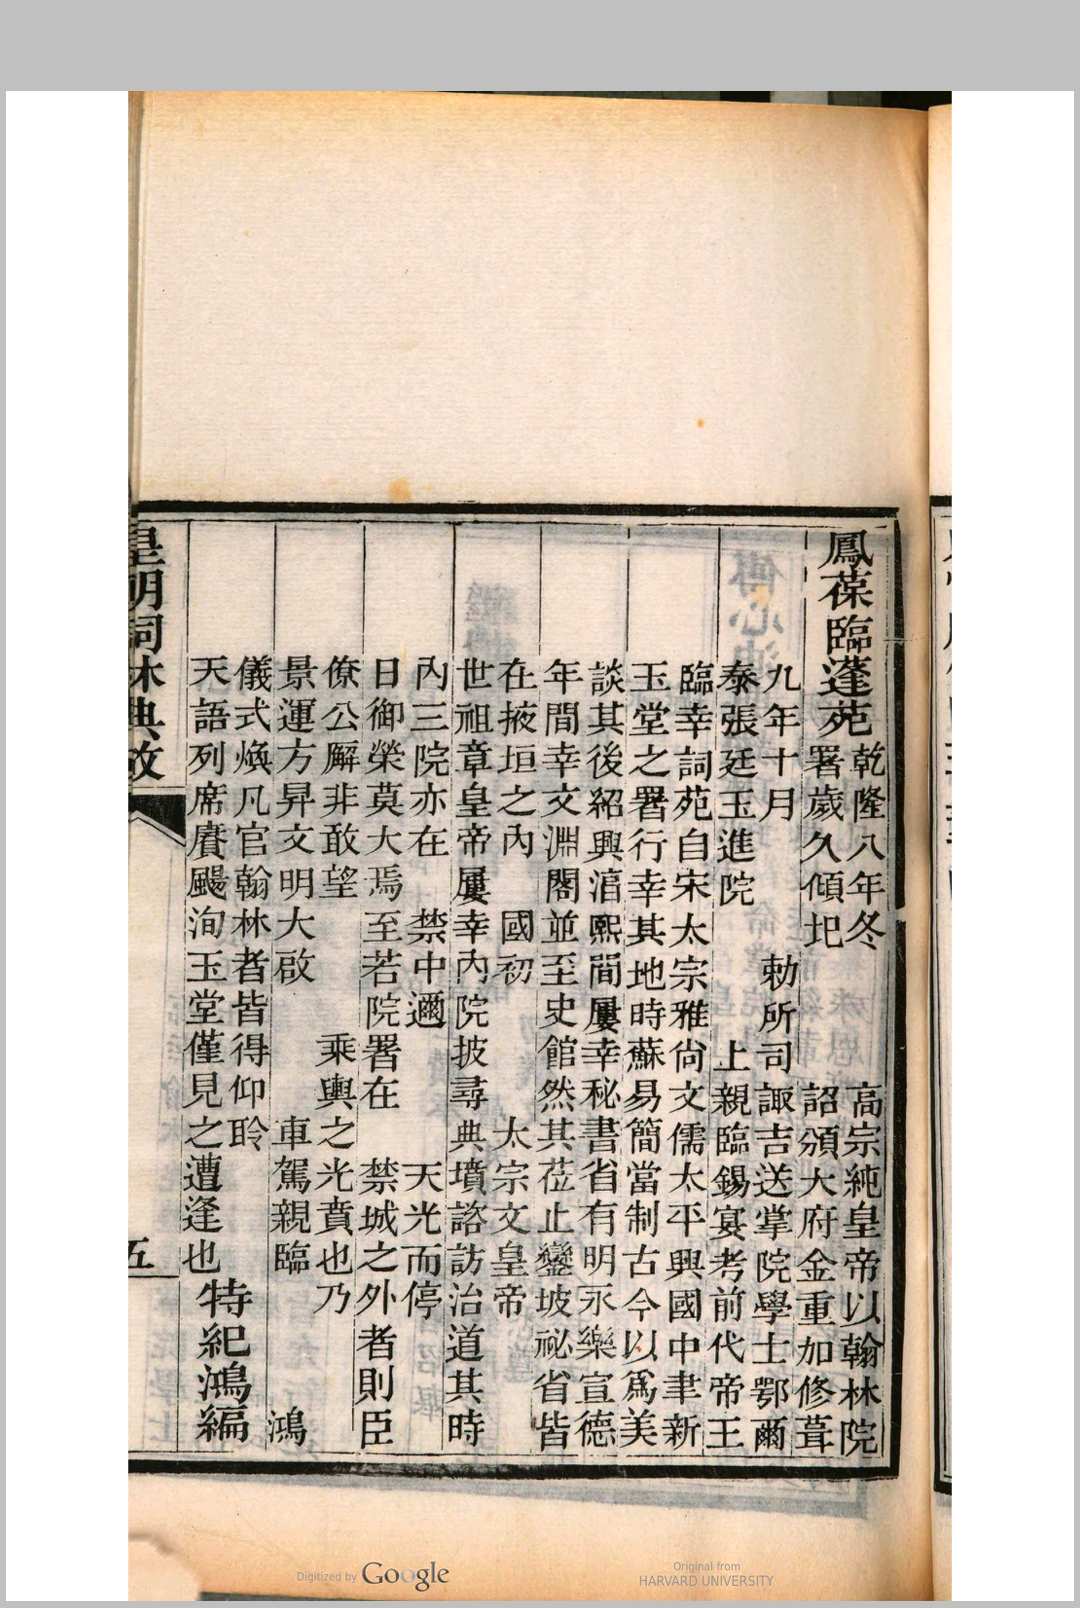 鳳葆臨蓬苑
乾隆八年冬　高宗純皇帝以翰林院
署歲久傾圯　詔頒大府金重加修葺
九年十月　勅所司諏吉送掌院學士鄂爾
泰張廷玉進院　上親臨錫宴考前代帝王
臨幸詞苑自宋太宗雅尚文儒太平興國中聿新
玉堂之署行幸其地時蘇易簡當制古今以為美
談其後紹興湻熙間屢幸秘書省有明永樂宣德
年間幸文淵閣並至史館然其莅止鑾坡祕省皆
在掖垣之內　國初　太宗文皇帝
世祖章皇帝屢幸內院披尋典墳諮訪治道其時
內三院亦在　禁中邇　天光而停
日御榮莫大焉至若院署在　禁城之外者則臣
僚公廨非敢望　乘輿之光賁也乃
景運方昇文明大啟　車駕親臨　鴻
儀式煥凡官翰林者皆得仰聆
天語列席賡颺洵玉堂僅見之遭逢也　特紀鴻編
皇朝詞林典故
五
Digitized by Google
Original from
HARVARD UNIVERSITY